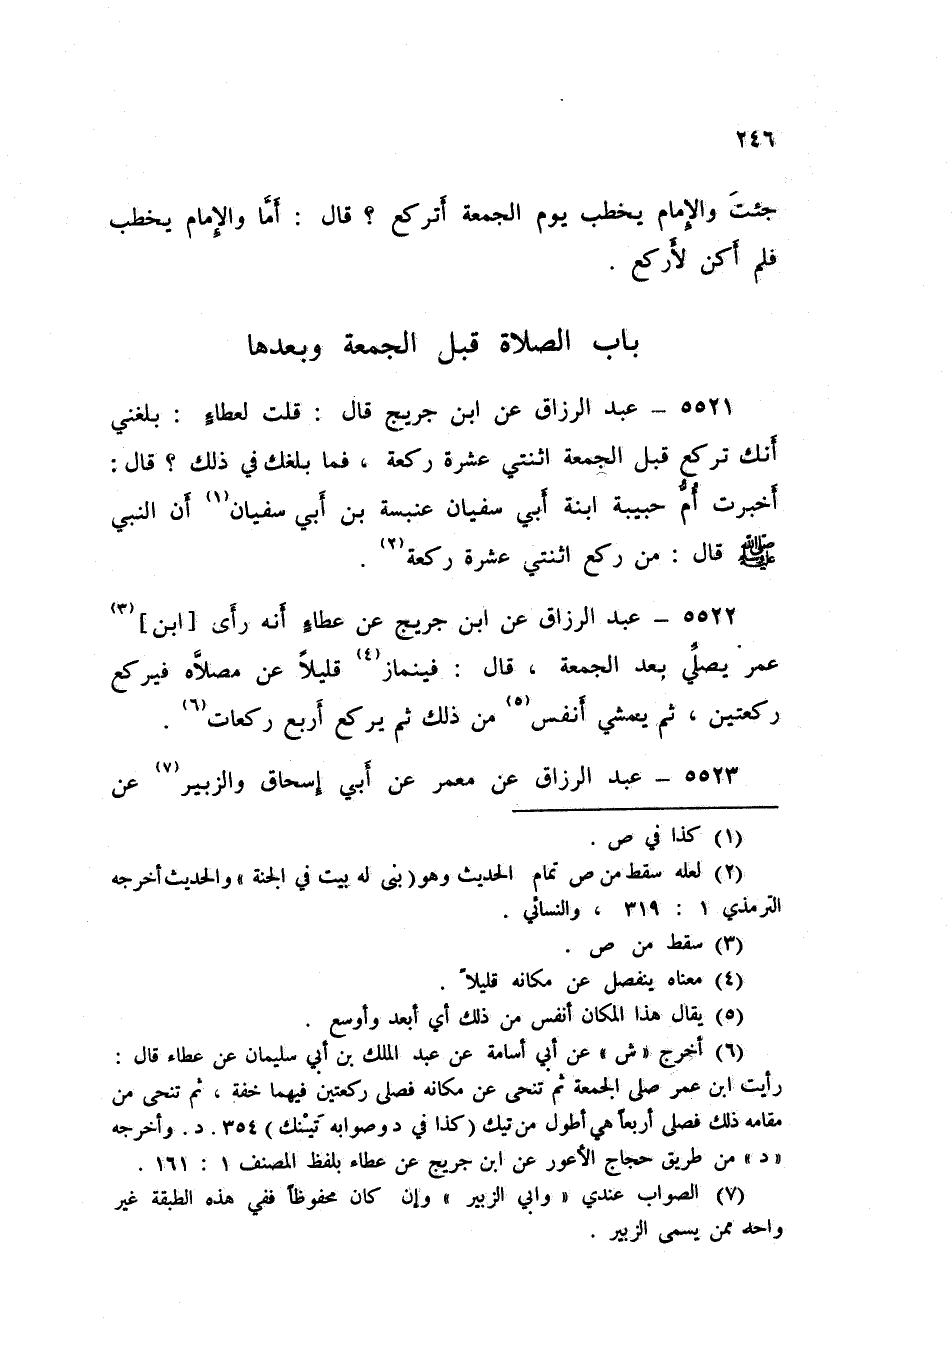 ٢٤٦
جئتَ والإمام يخطب يوم الجمعة أتركع ؟ قال : أمَّا والإمام يخطب
فلم أكن لأركع .
باب الصلاة قبل الجمعة وبعدها
٥٥٢١ – عبد الرزاق عن ابن جريج قال : قلت لعطاءٍ : بلغني
أنك تركع قبل الجمعة اثنتي عشرة ركعة ، فما بلغك في ذلك ؟ قال :
أخبرت أُمُّ حبيبة ابنة أبي سفيان عنبسة بن أبي سفيان(١) أن النبي
ﷺ قال : من ركع اثنتي عشرة ركعة(٢) .
٥٥٢٢ – عبد الرزاق عن ابن جريج عن عطاءٍ أنه رأى [ ابن ](٣)
عمر يصلِّي بعد الجمعة ، قال : فينماز(٤) قليلاً عن مصلاَّه فيركع
ركعتين ، ثم يمشي أنفس(٥) من ذلك ثم يركع أربع ركعات(٦) .
٥٥٢٣ – عبد الرزاق عن معمر عن أبي إسحاق والزبير(٧) عن
(١) كذا في ص .
(٢) لعله سقط من ص تمام الحديث وهو ( بنى له بيت في الجنة » والحديث أخرجه
الترمذي ١ : ٣١٩ ، والنسائي .
(٣) سقط من ص .
(٤) معناه ينفصل عن مكانه قليلاً .
(٥) يقال هذا المكان أنفس من ذلك أي أبعد وأوسع .
(٦) أخرج « ش » عن أبي أسامة عن عبد الملك بن أبي سليمان عن عطاء قال :
رأيت ابن عمر صلى الجمعة ثم تنحى عن مكانه فصلى ركعتين فيهما خفة ، ثم تنحى من
مقامه ذلك فصلى أربعاً هي أطول من تيك ( كذا في د وصوابه تَيْنك ) ٣٥٤ . د . وأخرجه
« د » من طريق حجاج الأعور عن ابن جريج عن عطاء بلفظ المصنف ١ : ١٦١ .
(٧) الصواب عندي « وابي الزبير » وإن كان محفوظاً ففي هذه الطبقة غير
واحد ممن يسمى الزبير .